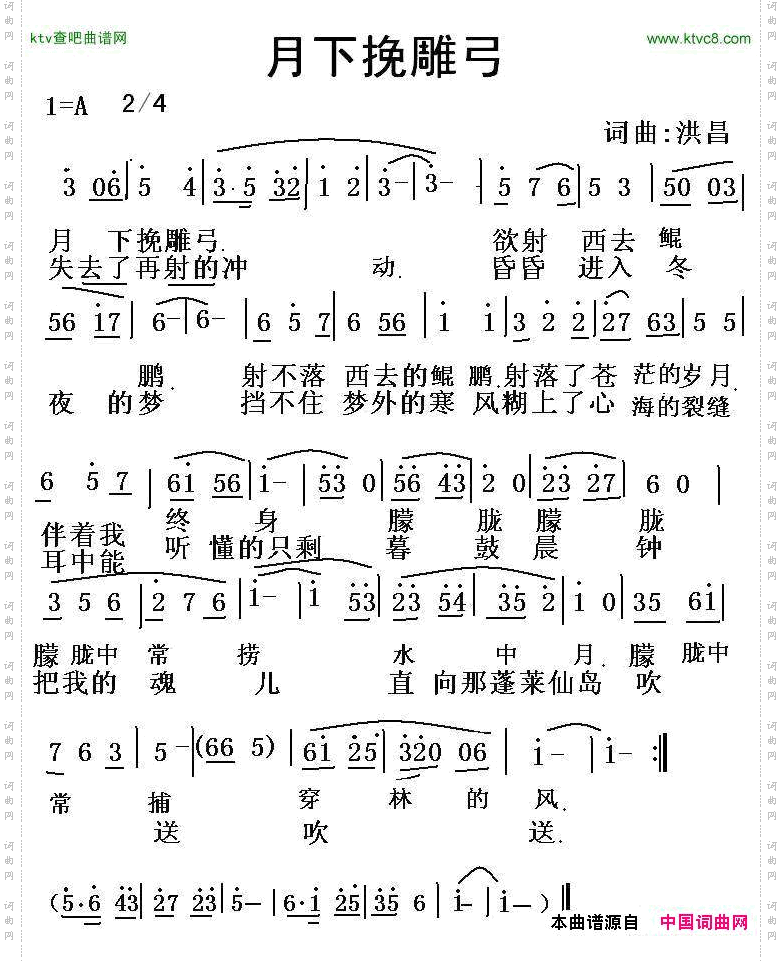 ktv查吧曲谱网
www.ktvc8.com
月下挽雕弓
1=A 2/4
词曲:洪昌
3 06 | 5 4 | 3·5 32 | 1 2 | 3- | 3- | - | 5 7 6 | 5 3 | 50 03 |
月 下挽雕弓. 欲射 西去 鲲
失去了再射的冲 动. 昏昏 进入 冬
56 17 | 6- | 6- | 6 5 7 | 6 56 | 1 1 | 3 2 2 | 27 63 | 5 5
鹏. 射不落 西去的鲲 鹏.射落了苍 茫的岁月.
夜 的梦 挡不住 梦外的寒 风糊上了心 海的裂缝
6 5 7 | 61 56 | 1- | 53 0 | 56 43 | 2 0 | 23 27 | 6 0 |
伴着我 终 身 朦 胧 朦 胧
耳中能 听 懂的只剩 暮 鼓 晨 钟
3 5 6 | 2 7 6 | 1- | 1 53 | 23 54 | 35 2 | 1 0 | 35 61 |
朦 胧中 常 捞 水 中 月. 朦 胧中
把我的 魂 儿 直 向那蓬莱仙岛 吹
7 6 3 | 5 - | (66 5) | 61 25 | 320 06 | 1- | 1- :||
常 捕 穿 林 的 风.
送 吹 送.
(5·6 43 | 27 23 | 5- | 6·1 25 | 35 6 | 1- | 1- ) ||
本曲谱源自 中国词曲网
词曲网